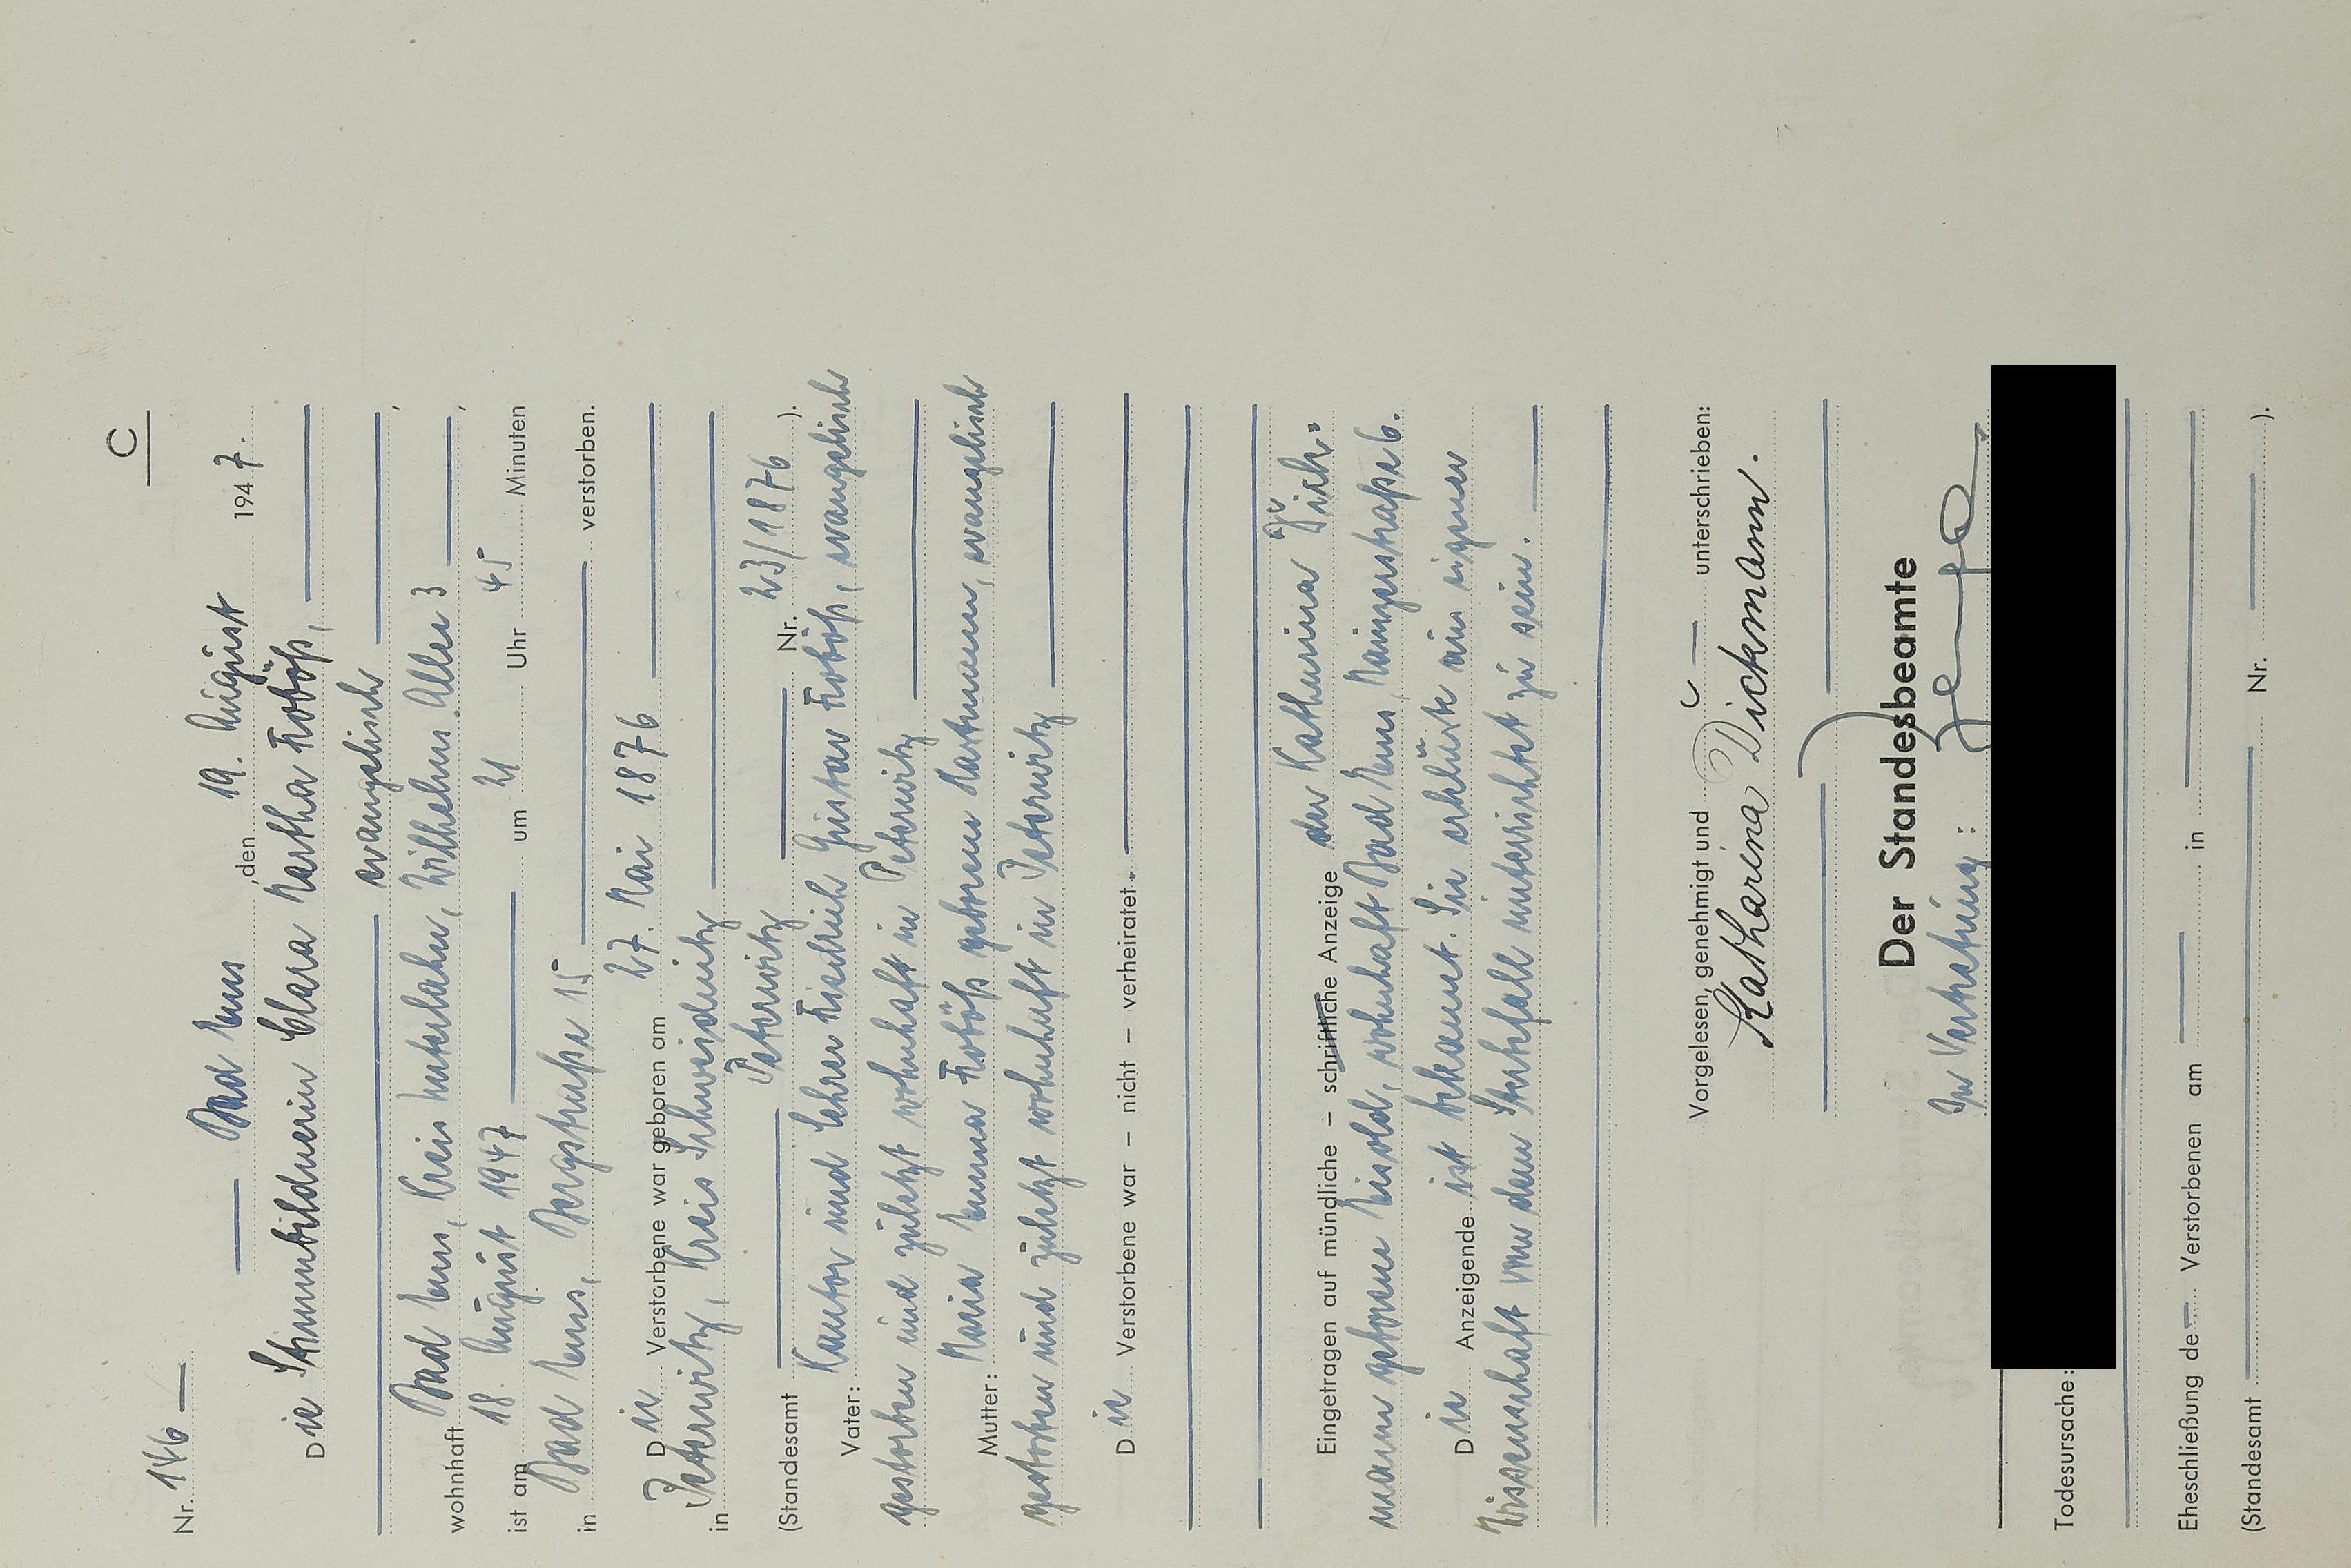 C
Nr. 146
Bad Ems, den 19. August 1947.
Die Stimmbildnerin Clara Martha Froböß,
evangelisch,
wohnhaft Bad Ems, Kreis Unterlahn, Wilhelms Allee 3,
ist am 18. August 1947 um 21 Uhr 45 Minuten
in Bad Ems, Bergstraße 15 verstorben.
Die Verstorbene war geboren am 27. Mai 1876
in Peterwitz, Kreis Schweidnitz
(Standesamt Peterwitz Nr. 23/1876).
Vater: Kantor und Lehrer Friedrich Gustav Froböß, evangelisch
gestorben und zuletzt wohnhaft in Peterwitz
Mutter: Maria Emma Froböß geborene Hartmann, evangelisch
gestorben und zuletzt wohnhaft in Peterwitz
Die Verstorbene war – nicht – verheiratet.
Eingetragen auf mündliche – schriftliche Anzeige der Katharina Dick=
mann geborene, wohnhaft Bad Ems, Mainzerstraße 6.
Die Anzeigende ist bekannt. Sie erklärte aus eigener
Wissenschaft von dem Sterbfall unterrichtet zu sein.
Vorgelesen, genehmigt und unterschrieben:
Katharina Dickmann.
Der Standesbeamte
In Vertretung:
Todesursache:
Eheschließung de Verstorbenen am in
(Standesamt Nr. ).